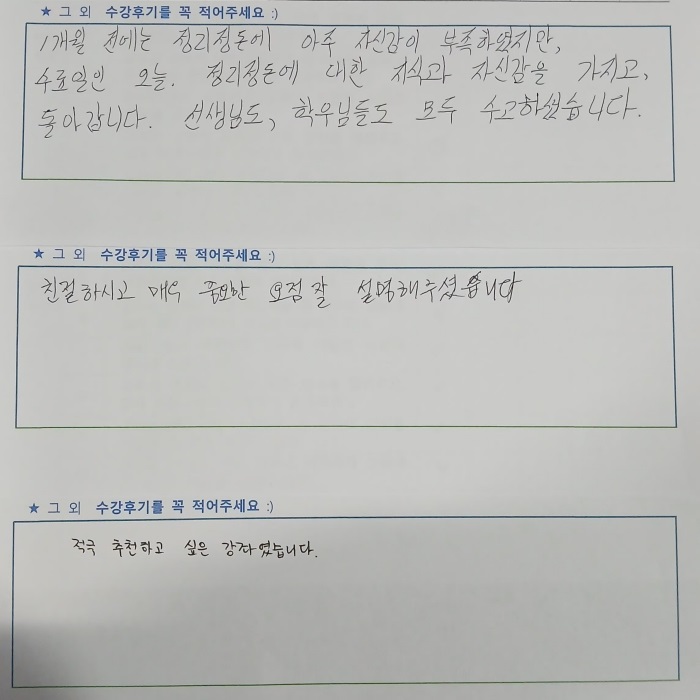 ★ 그 외 수강후기를 꼭 적어주세요 :)
1개월 전에는 정리정돈에 아주 자신감이 부족하였지만,
수료일인 오늘. 정리정돈에 대한 지식과 자신감을 가지고,
돌아갑니다. 선생님도, 학우님들도 모두 수고하셨습니다.
★ 그 외 수강후기를 꼭 적어주세요 :)
친절하시고 매우 요점 잘 설명해주셨습니다
★ 그 외 수강후기를 꼭 적어주세요 :)
적극 추천하고 싶은 강좌였습니다.